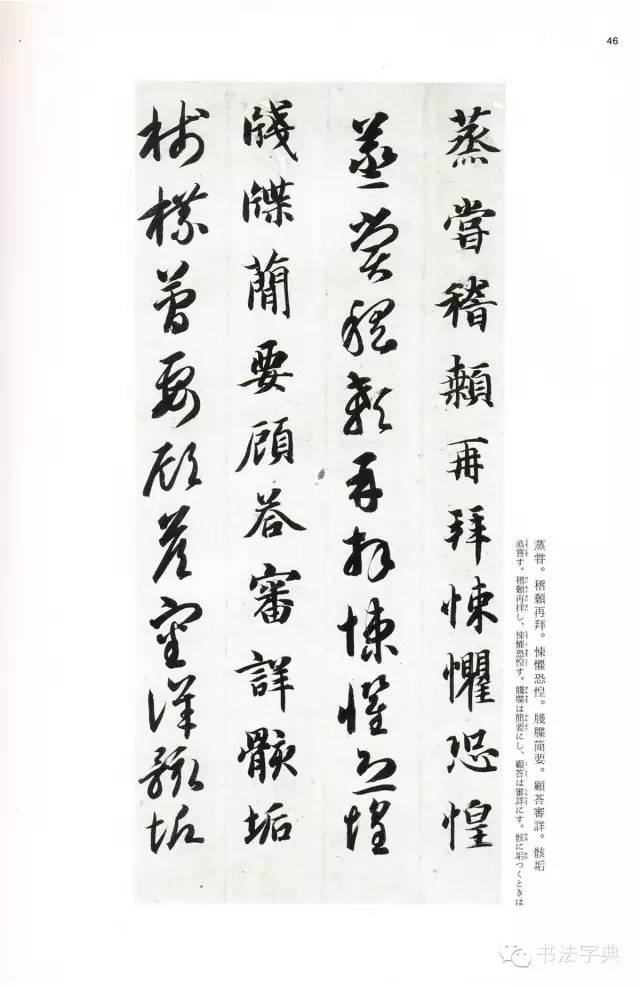 46
蒸甞。稽顙再拜。悚懼恐惶。牋牒簡要。顧荅審詳。骸垢
蒸嘗す。稽顙再拝し、悚懼恐惶す。牋牒は簡要にし、顧答は審詳にす。骸に垢つくときは
蒸嘗稽顙再拜悚懼恐惶
蒸嘗稽顙再拜悚懼恐惶
牋牒簡要顧荅審詳骸垢
牋牒簡要顧荅審詳骸垢
书法字典